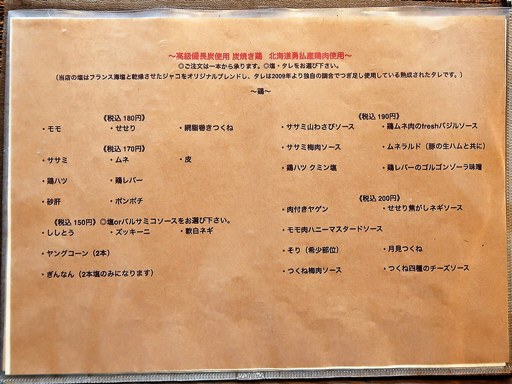 〜高級備長炭使用 炭焼き鶏　北海道勇払産鶏肉使用〜
◎ご注文は一本から承ります。◎塩・タレをお選び下さい。
（当店の塩はフランス海塩と乾燥させたジャコをオリジナルブレンドし、タレは2009年より独自の調合でつぎ足し使用している熟成されたタレです。）
〜鶏〜
《税込 180円》
・モモ　・せせり　・網脂巻きつくね
《税込 170円》
・ササミ　・ムネ　・皮
・鶏ハツ　・鶏レバー
・砂肝　・ボンボチ
《税込 150円》◎塩orバルサミコソースをお選び下さい。
・ししとう　・ズッキーニ　・軟白ネギ
・ヤングコーン（2本）
・ぎんなん（2本塩のみになります）
《税込 190円》
・ササミ山わさびソース　・鶏ムネ肉のfreshバジルソース
・ササミ梅肉ソース　・ムネラルド（豚の生ハムと共に）
・鶏ハツ クミン塩　・鶏レバーのゴルゴンゾーラ味噌
《税込 200円》
・肉付きヤゲン　・せせり焦がしネギソース
・モモ肉ハニーマスタードソース
・そり（希少部位）　・月見つくね
・つくね梅肉ソース　・つくね四種のチーズソース